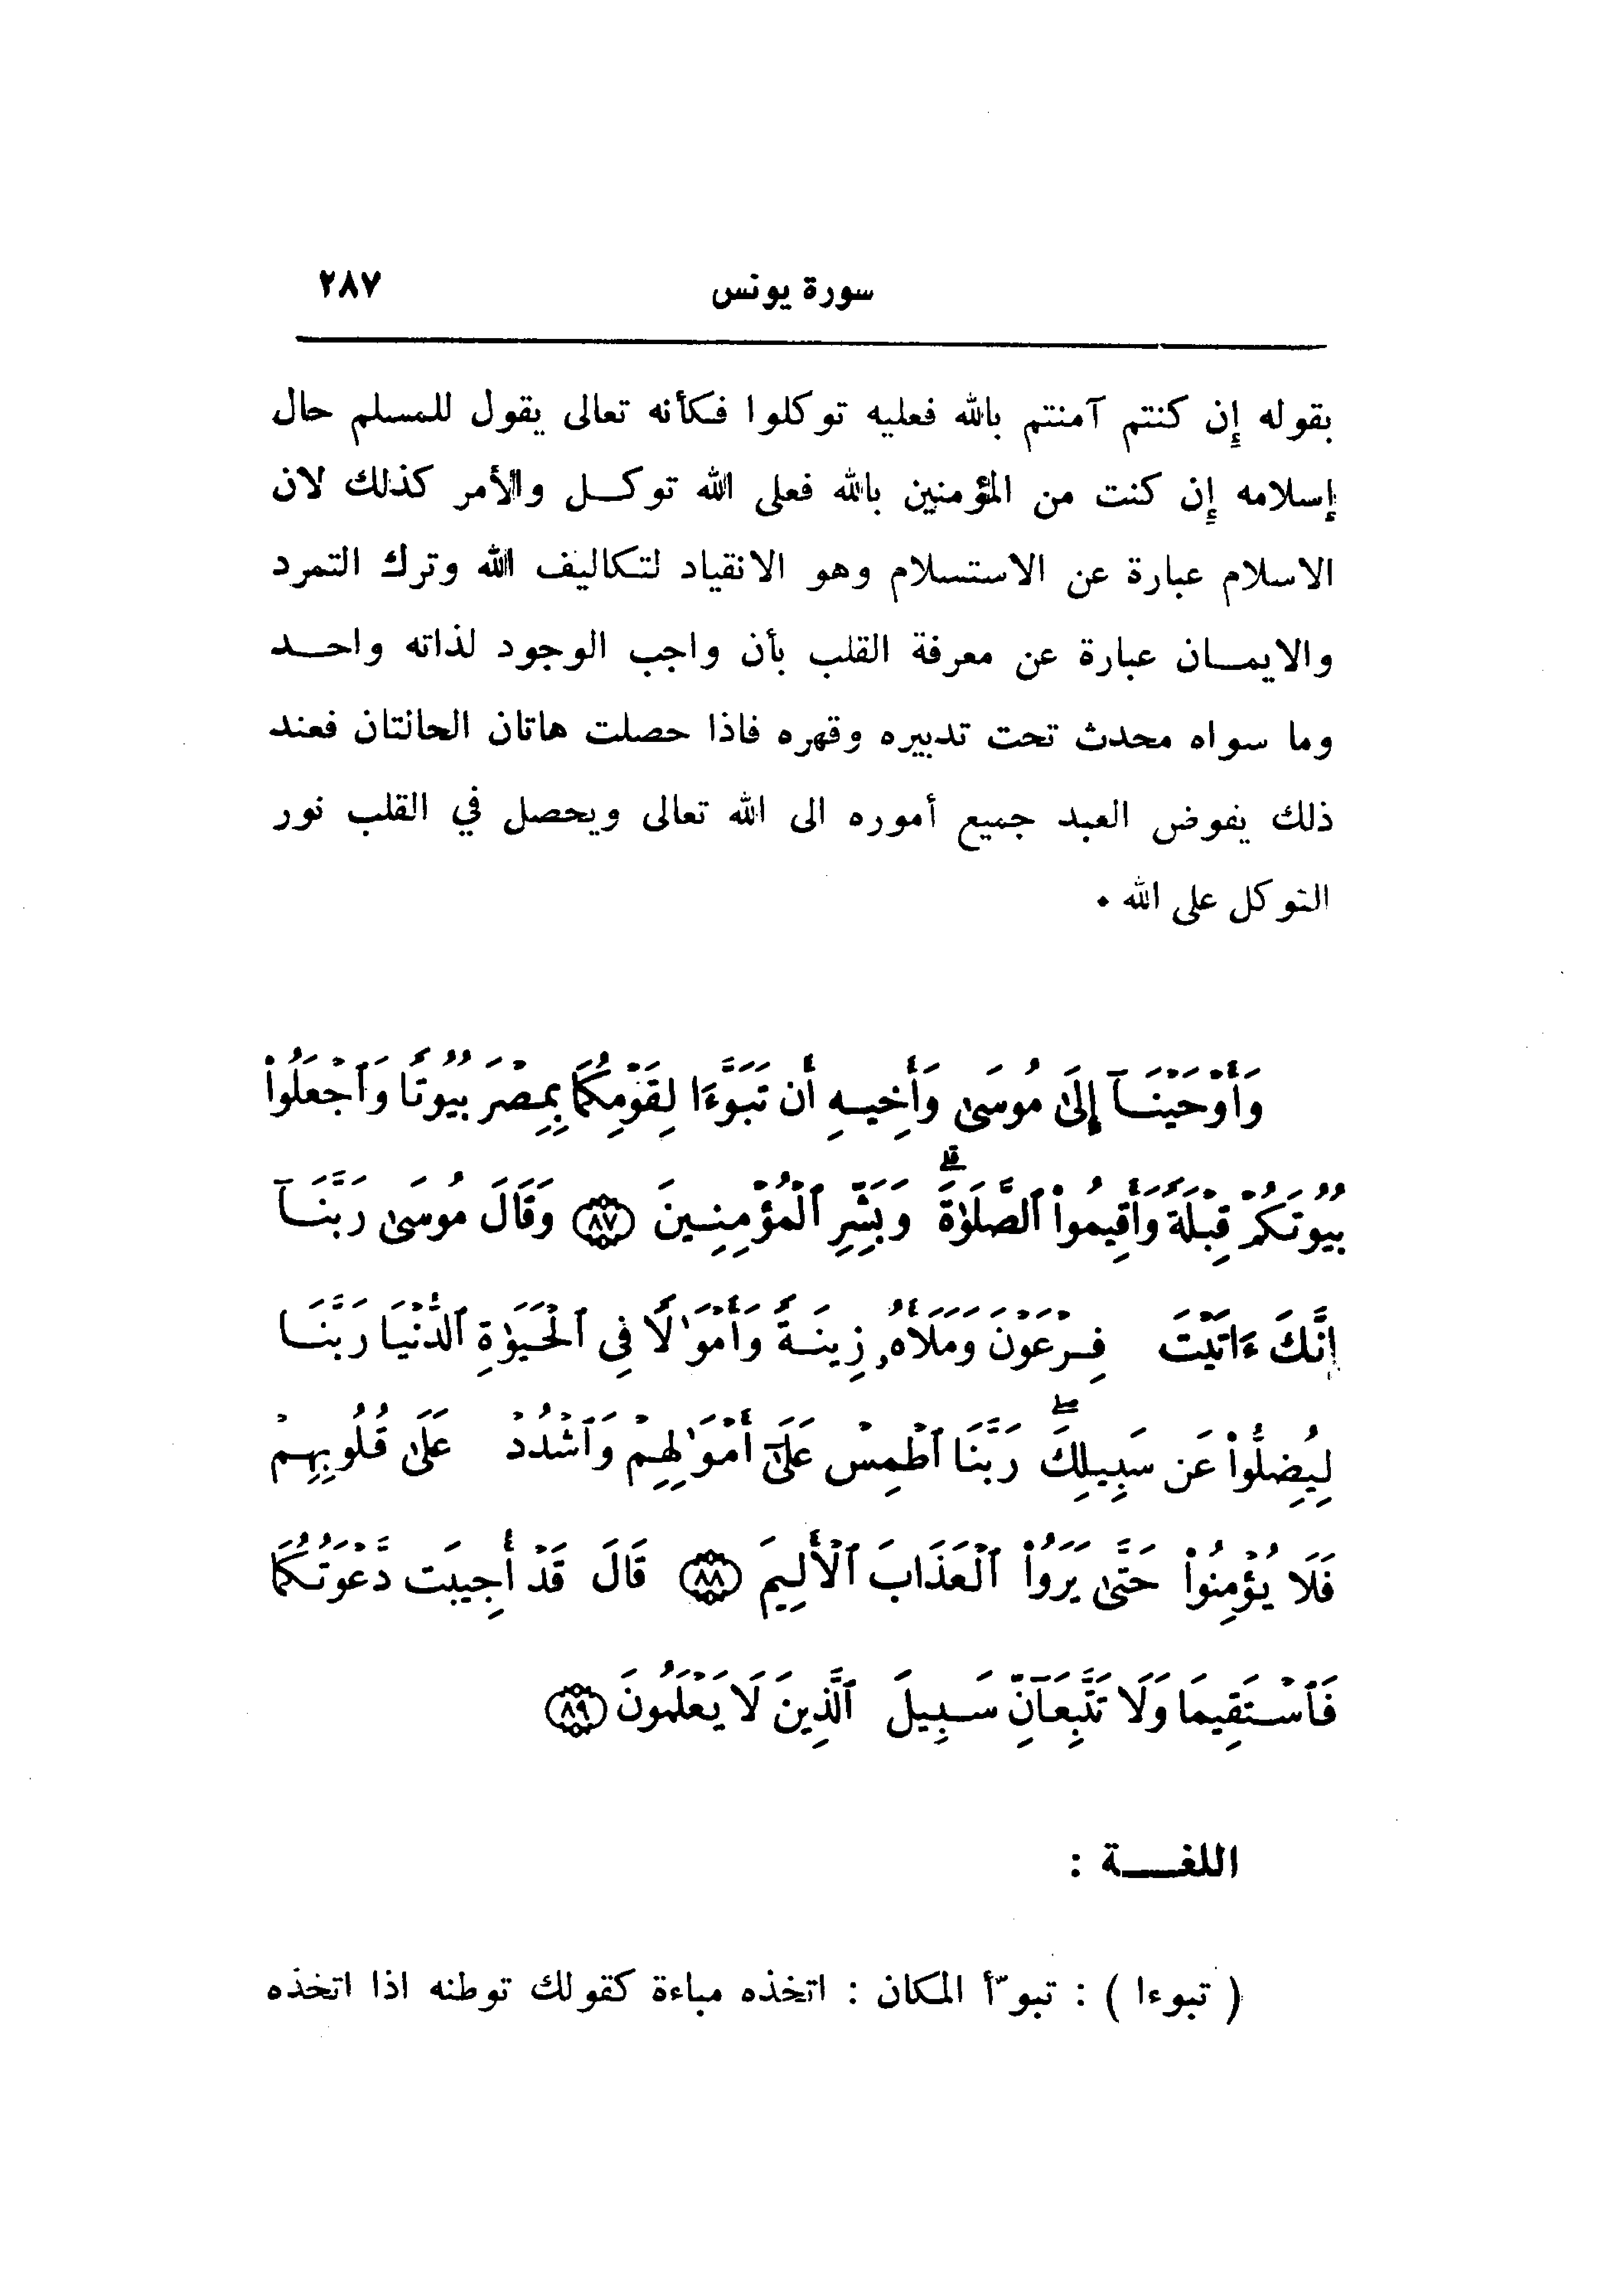 سورة يونس ٢٨٧
بقوله إن كنتم آمنتم بالله فعليه توكلوا فكأنه تعالى يقول للمسلم حال
إسلامه إن كنت من المؤمنين بالله فعلى الله توكــل والأمر كذلك لان
الاسلام عبارة عن الاستسلام وهو الانقياد لتكاليف الله وترك التمرد
والايمــان عبارة عن معرفة القلب بأن واجب الوجود لذاته واحــد
وما سواه محدث تحت تدبيره وقهره فاذا حصلت هاتان الحالتان فعند
ذلك يفوض العبد جميع أموره الى الله تعالى ويحصل في القلب نور
التوكل على الله ٠
وَأَوْحَيْنَآ إِلَىٰ مُوسَىٰ وَأَخِيهِ أَن تَبَوَّءَا لِقَوْمِكُمَا بِمِصْرَ بُيُوتًا وَٱجْعَلُوا۟
بُيُوتَكُمْ قِبْلَةً وَأَقِيمُوا۟ ٱلصَّلَوٰةَ ۗ وَبَشِّرِ ٱلْمُؤْمِنِينَ ﴿٨٧﴾ وَقَالَ مُوسَىٰ رَبَّنَآ
إِنَّكَ ءَاتَيْتَ فِرْعَوْنَ وَمَلَأَهُۥ زِينَةً وَأَمْوَٰلًا فِى ٱلْحَيَوٰةِ ٱلدُّنْيَا رَبَّنَا
لِيُضِلُّوا۟ عَن سَبِيلِكَ ۖ رَبَّنَا ٱطْمِسْ عَلَىٰٓ أَمْوَٰلِهِمْ وَٱشْدُدْ عَلَىٰ قُلُوبِهِمْ
فَلَا يُؤْمِنُوا۟ حَتَّىٰ يَرَوُا۟ ٱلْعَذَابَ ٱلْأَلِيمَ ﴿٨٨﴾ قَالَ قَدْ أُجِيبَت دَّعْوَتُكُمَا
فَٱسْتَقِيمَا وَلَا تَتَّبِعَآنِّ سَبِيلَ ٱلَّذِينَ لَا يَعْلَمُونَ ﴿٨٩﴾
اللغـــة :
( تبوءا ) : تبوّأ المكان : اتخذه مباءة كقولك توطنه اذا اتخذه